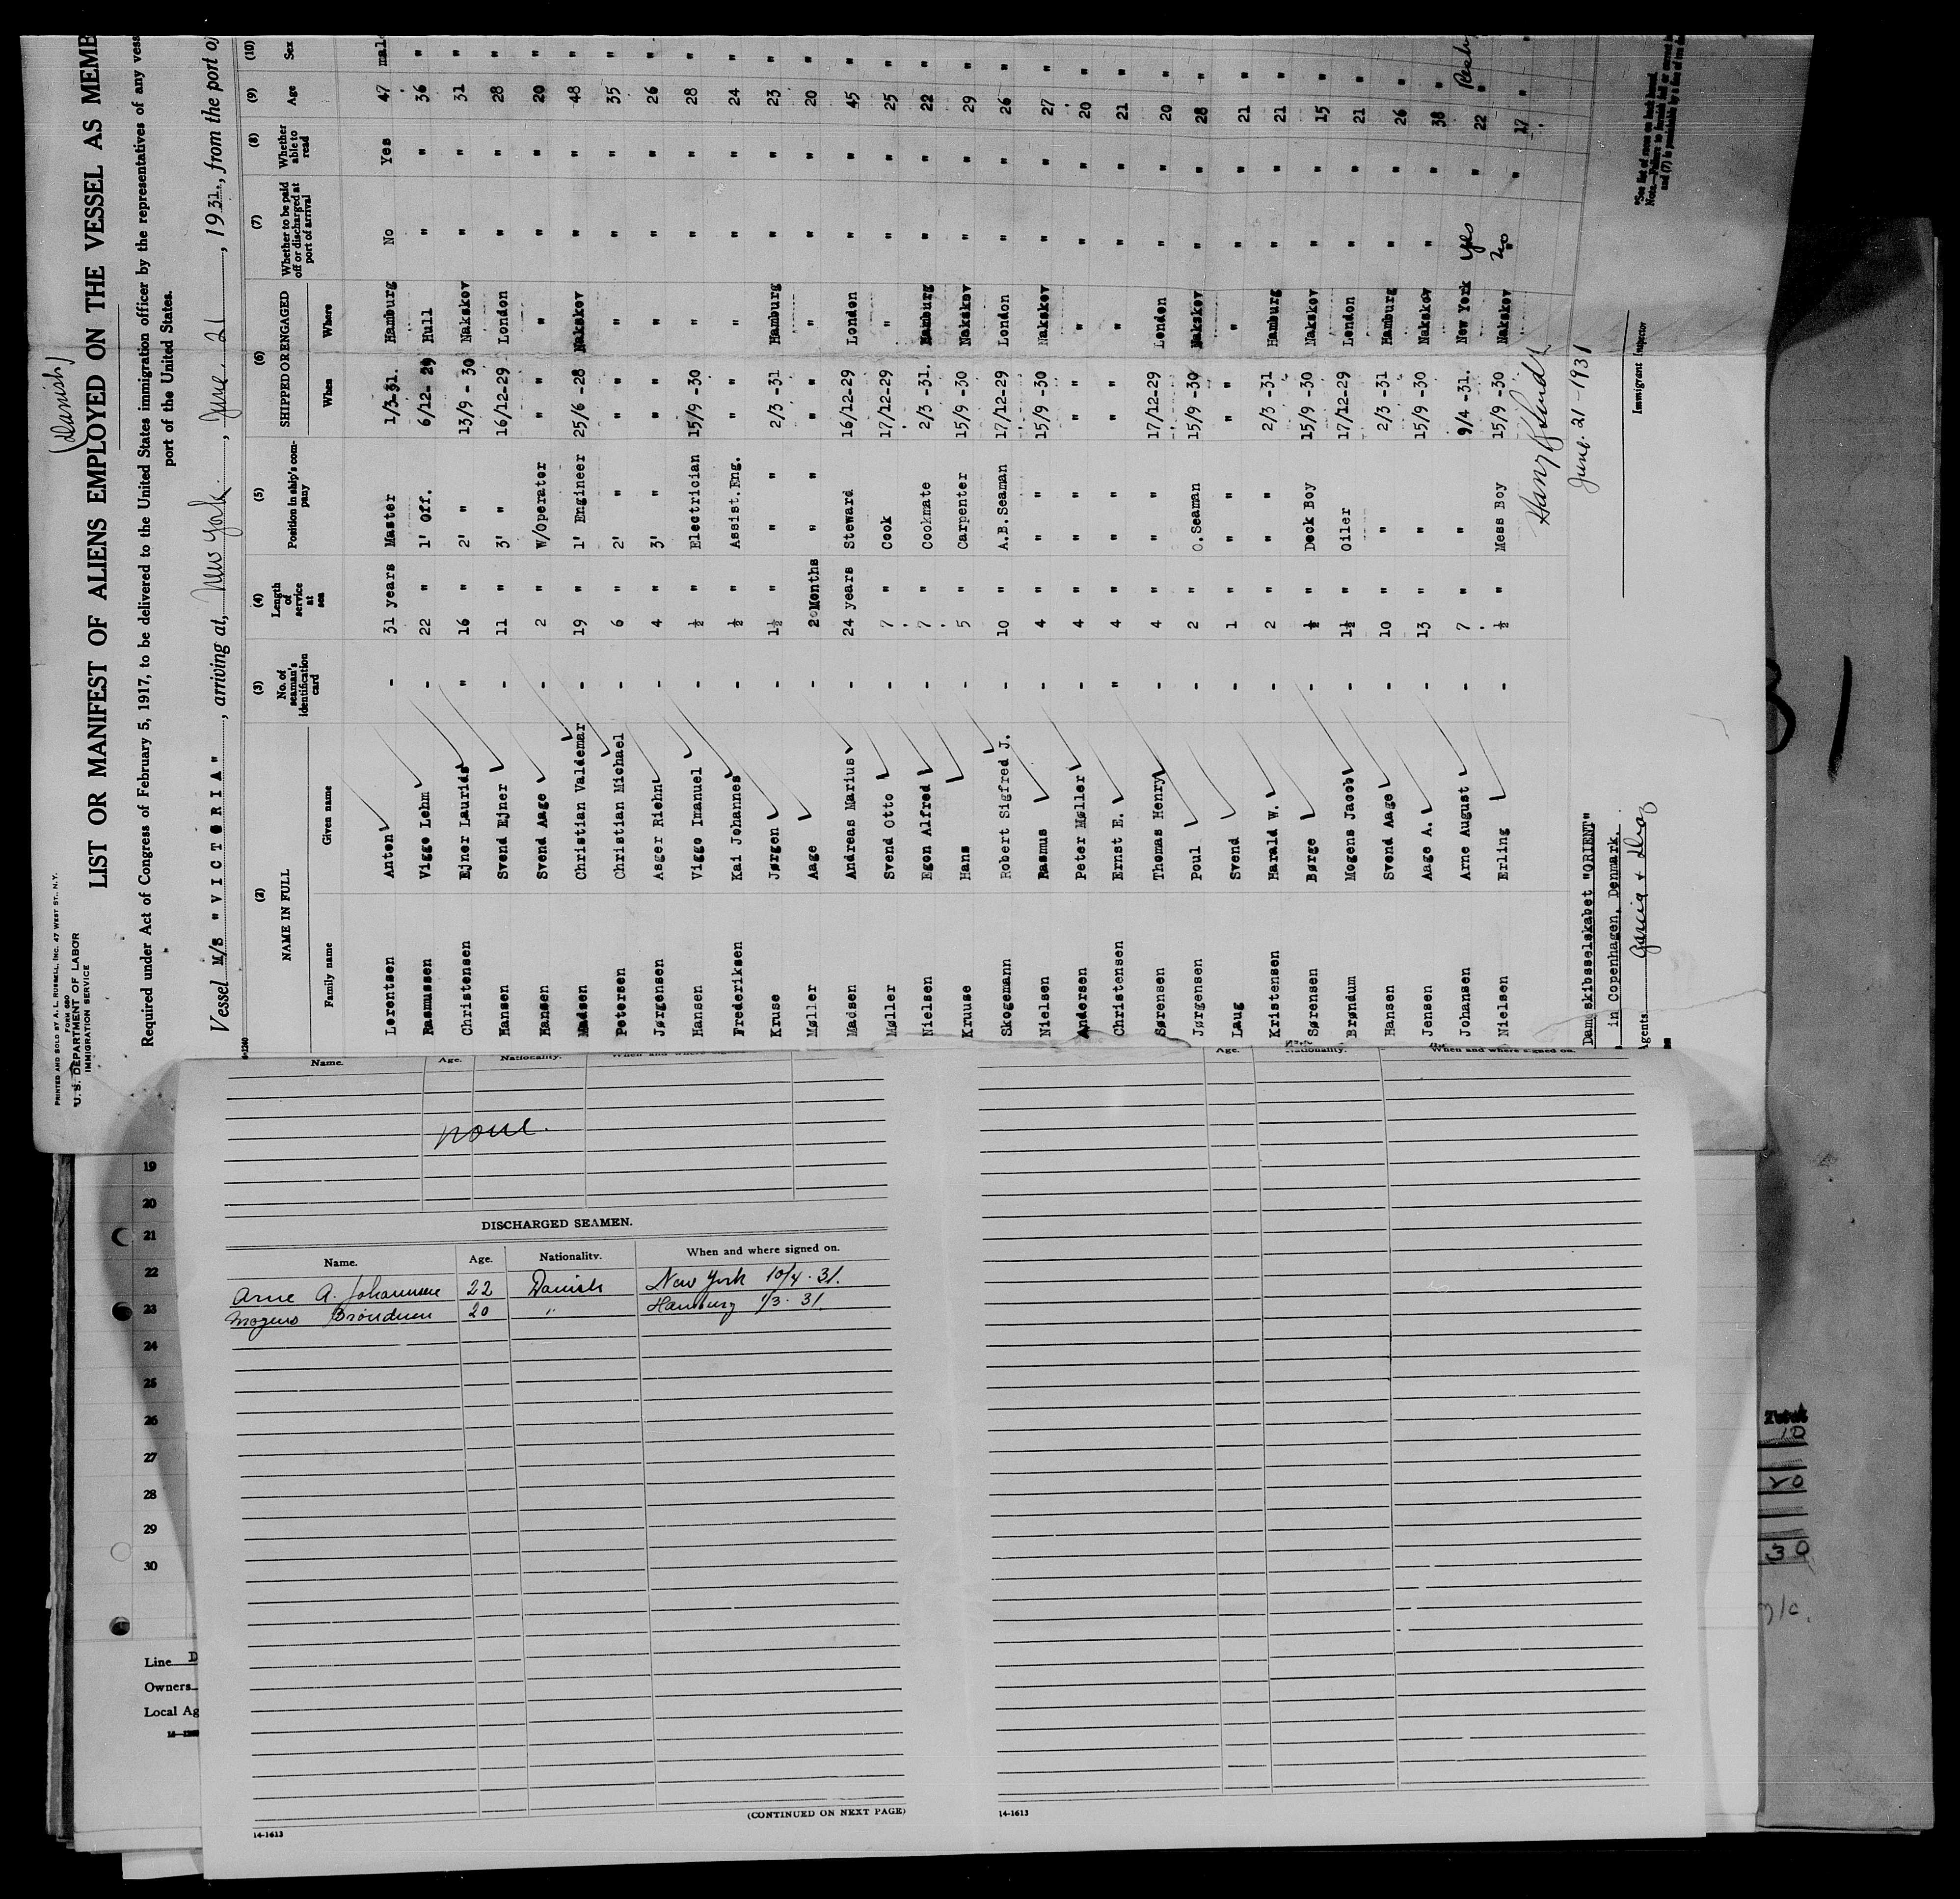 (Danish)
PRINTED AND SOLD BY A. L. RUSSELL, INC. 47 WEST ST., N.Y.
FORM 680
U. S. DEPARTMENT OF LABOR
IMMIGRATION SERVICE
LIST OR MANIFEST OF ALIENS EMPLOYED ON THE VESSEL AS MEMB
Required under Act of Congress of February 5, 1917, to be delivered to the United States immigration officer by the representatives of any vess
port of the United States.
Vessel M/S "VICTORIA", arriving at, New York, June 21, 1931, from the port of
(2) (3) (4) (5) (6) (7) (8) (9) (10)
NAME IN FULL No. of seaman's identification card Length of service at sea Position in ship's company SHIPPED OR ENGAGED Whether to be paid off or discharged at port of arrival Whether able to read Age Sex
Family name Given name When Where
Lorentsen Anton - 31 years Master 1/3-31. Hamburg No Yes 47 male
Rasmussen Viggo Lehm - 22 " 1' Off. 6/12-29 Hull " " 36 "
Christensen Ejner Laurids " 16 " 2' " 13/9 - 30 Nakskov " " 31 "
Hansen Svend Ejner - 11 " 3' " 16/12-29 London " " 28 "
Hansen Svend Aage - 2 " W/Operator " " " " 20 "
Madsen Christian Valdemar - 19 " 1' Engineer 25/6 -28 Nakskov " " 48 "
Petersen Christian Michael - 6 " 2' " " " " " 35 "
Jørgensen Asger Riehn - 4 " 3' " " " " " 26 "
Hansen Viggo Imanuel - ½ " Electrician 15/9 -30 " " " 28 "
Frederiksen Kai Johannes - ½ " Assist.Eng. " " " " 24 "
Kruse Jørgen - 1½ " " " 2/3 -31 Hamburg " " 23 "
Møller Aage - 20 Months " " " " " " 20 "
Madsen Andreas Marius - 24 years Steward 16/12-29 London " " 45 "
Møller Svend Otto - 7 " Cook 17/12-29 " " " 25 "
Nielsen Egon Alfred - 7 " Cookmate 2/3 -31. Hamburg " " 22 "
Kruuse Hans - 5 " Carpenter 15/9 -30 Nakskov " " 29 "
Skogemann Robert Sigfred J. - 10 " A.B.Seaman 17/12-29 London " " 26 "
Nielsen Rasmus - 4 " " " 15/9 -30 Nakskov " " 27 "
Andersen Peter Møller - 4 " " " " " " " 20 "
Christensen Ernst E. " 4 " " " " " " " 21 "
Sørensen Thomas Henry - 4 " " " 17/12-29 London " " 20 "
Jørgensen Poul - 2 " O.Seaman 15/9 -30 Nakskov " " 28 "
Laug Svend - 1 " " " " " " " 21 "
Kristensen Harald W. - 2 " " " 2/3 -31 Hamburg " " 21 "
Sørensen Børge - ½ " Deck Boy 15/9 -30 Nakskov " " 15 "
Brøndum Mogens Jacob - 1½ " Oiler 17/12-29 London " " 21 "
Hansen Svend Aage - 10 " " 2/3 -31 Hamburg " " 26 "
Jensen Aage A. - 13 " " 15/9 -30 Nakskov " " 38 "
Johansen Arne August - 7 " " 9/4 -31. New York yes " 22 "
Nielsen Erling - ½ " Mess Boy 15/9 -30 Nakskov no " 17 "
June. 21 - 1931
Dampskibsselskabet "ORIENT"
in Copenhagen, Denmark.
Agents
Immigrant Inspector
*See list of races on back hereof.
Name. Age. Nationality. When and where signed on.
none.
DISCHARGED SEAMEN.
Name. Age. Nationality. When and where signed on.
Arne A. Johannsen 22 Danish New York 10/4-31.
Mogens Bröndum 20 " Hamburg 1/3-31
(CONTINUED ON NEXT PAGE)
14-1613
Age. Nationality. When and where signed on.
14-1613
19
20
21
22
23
24
25
26
27
28
29
30
Line D
Owners
Local Ag
Total
10
20
30